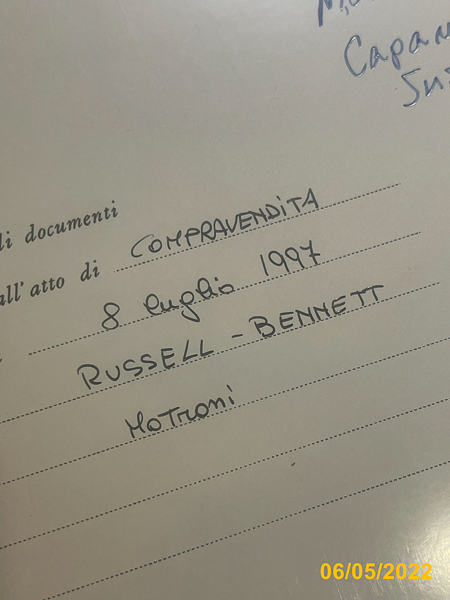 Capan
li documenti
all'atto di COMPRAVENDITA
8 luglio 1997
RUSSELL - BENNETT
MOTRONI
06/05/2022